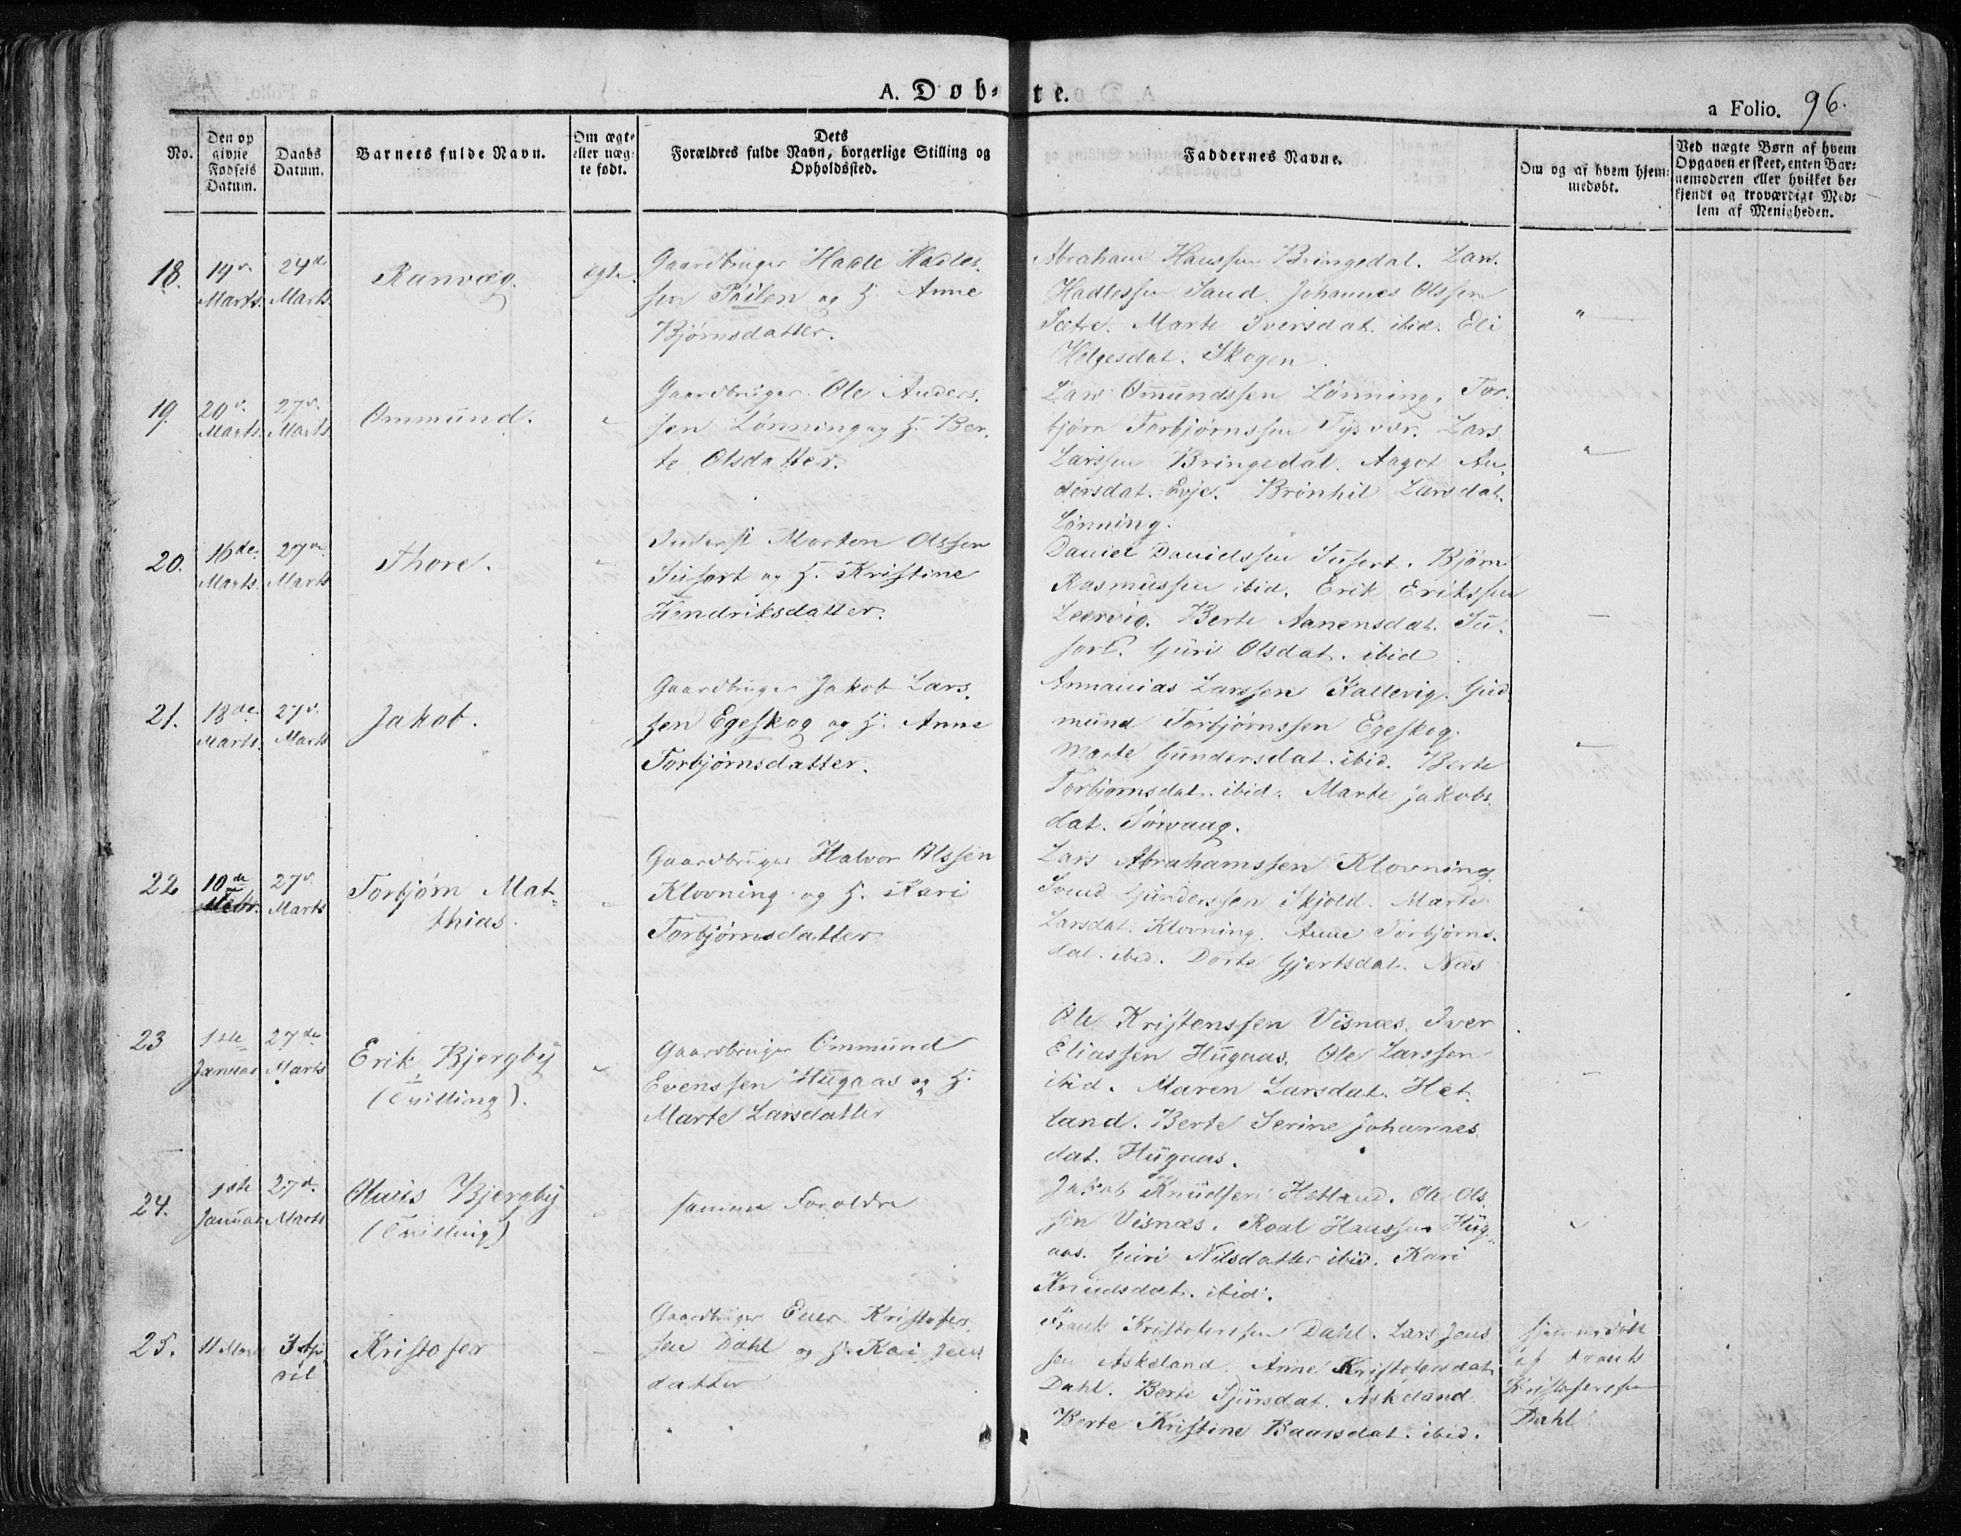 A. Døb- te.
a Folio. 96.
No.
Den op
givne
Fødsels
Datum.
Daabs
Datum.
Barnets fulde Navn.
Om ægte
eller uæg-
te født.
Dets
Forældres fulde Navn, borgerlige Stilling og
Opholdssted.
Faddernes Navne.
Om og af hvem hjem-
medøbt.
Ved uægte Børn af hvem
Opgaven er skeet, enten Bar-
nemoderen eller hvilket be-
kjendt og troværdigt Med-
lem af Menigheden.
18.
19de
Marts.
24de
Marts
Ranvæg.
ægte.
Gaardbruger Hadle Hadles-
sen og H. Anne
Bjørnsdatter.
Abraham Hanssen Bringedal. Lars
Hadlessen Sand. Johannes Olssen
Sætre. Marte Iversdat. ibid. Eli
Helgesdat. Skogen.
"
19.
20de
Marts.
27de
Marts
Ommund.
"
Gaardbruger Ole Anders-
sen Lønning og H. Ber-
te Olsdatter.
Lars Omundssen Lønning. Tor-
bjørn Torbjørnssen Tysvær. Lars
Larssen Bringedal. Aagot An-
dersdat. Evje. Brønhil Larsdat.
Lønning.
"
20.
16de
Marts.
27de
Marts
Thore.
"
Inderst Morten Olssen
Susort og H. Kristine
Hendriksdatter.
Daniel Danielssen Susort. Bjørn
Rasmussen ibid. Erik Erikssen
Leervig. Berte Aanensdat. Su-
sort. Guri Olsdat. ibid.
—
21.
13de
Marts.
27de
Marts
Jakob.
"
Gaardbruger Jakob Lars-
sen Egeskog og H. Anne
Torbjørnsdatter.
Annanias Larssen Kallevig. Gud-
mund Torbjørnssen Egeskog.
Marte Gundersdat. ibid. Berte
Torbjørnsdat. ibid. Marte Jakobs-
dat. Sørvaag.
—
22
10de
Febr.
27de
Marts
Torbjørn Mat-
thias.
"
Gaardbruger Halvor Olssen
Klovning og H. Kari
Torbjørnsdatter
Lars Abrahamssen Klovning.
Svend Gunderssen Skjold. Marte
Larsdat. Klovning. Anne Torbjørns-
dat. ibid. Dorte Gjertsdat. Næs
23
1ste
Januar
27de
Marts
Erik Bjergby
(Tvilling).
"
Gaardbruger Ommund
Evenssen Hugaas og H.
Marte Larsdatter
Ole Kristenssen Visnæs. Iver
Eliassen Hugaas. Ole Larssen
ibid. Maren Larsdat. Het-
land. Berte Serine Johannes-
dat. Hugaas.
—
24.
1ste
Januar
27de
Marts
Olaus Bjergby
(Tvilling)
"
samme Forældre
Jakob Knudsen Hetland. Ole Ols-
sen Visnæs. Roal Hanssen Hug-
aas. Guri Nilsdatter ibid. Kari
Knudsdat. ibid.
"
25.
11 Marts
3 Ap-
ril
Kristofer
—
Gaardbruger Ener Kristofers-
sen Dahl og H. Kari Jens-
datter
Kristoferssen Dahl. Lars Jens-
sen Askeland. Anne Kristofersdat.
Dahl. Berte Sjursdat. Askeland.
Berte Kristine Baarsdat. ibid.
hjemmedøbt
af
Kristoferssen
Dahl.